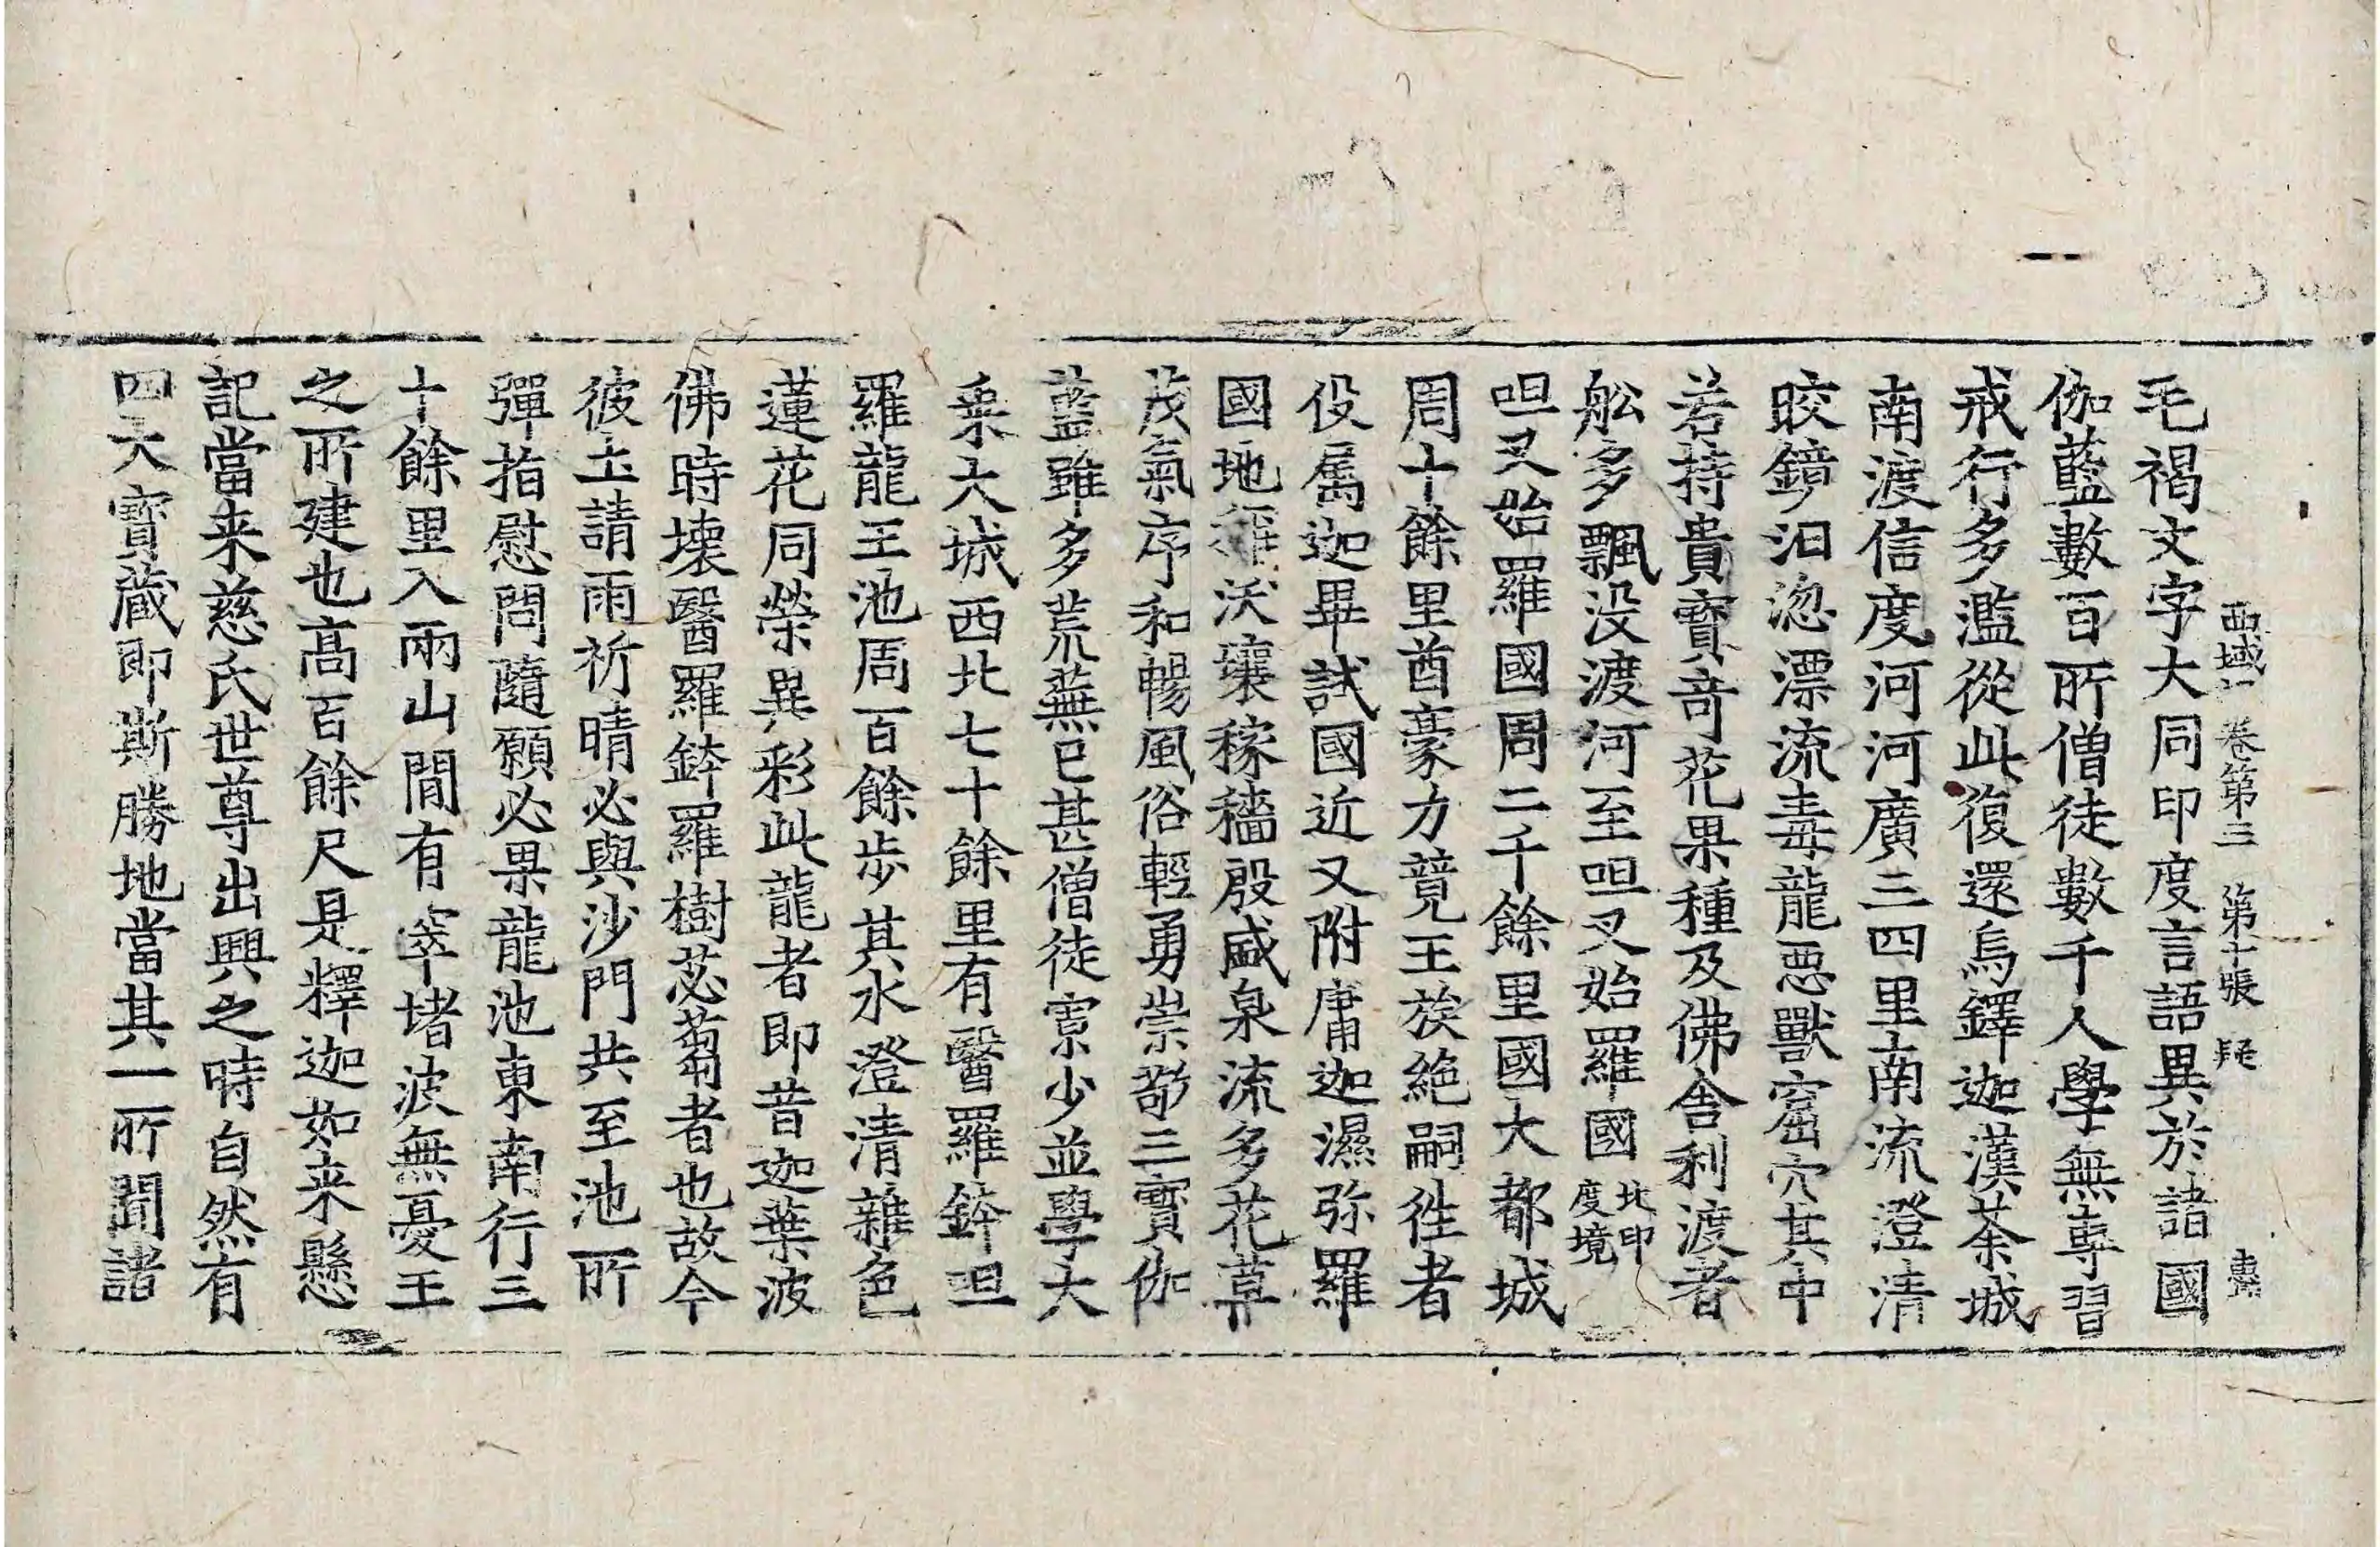 西域記卷第三 第十張 疑
毛褐文字大同印度言語異於諸國
伽藍數百所僧徒數千人學無專習
戒行多濫從此復還烏鐸迦漢荼城
南渡信度河河廣三四里南流澄清
皎鏡汨淴漂流毒龍惡獸窟穴其中
若持貴寶竒花果種及佛舍利渡者
舩多飄没渡河至呾叉始羅國北印度境
呾叉始羅國周二千餘里國大都城
周十餘里酋豪力競王族絶嗣徃者
役属迦畢試國近又附庸迦濕弥羅
國地稱沃壤稼穡殷盛泉流多花草
茂氣序和暢風俗輕勇崇敬三寶伽
藍雖多荒蕪已甚僧徒寡少並學大
乗大城西北七十餘里有醫羅鉢呾
羅龍王池周百餘步其水澄清雜色
蓮花同榮異彩此龍者即昔迦葉波
佛時壊醫羅鉢羅樹苾蒭者也故今
彼土請雨祈晴必與沙門共至池所
彈指慰問隨願必果龍池東南行三
十餘里入兩山間有窣堵波無憂王
之所建也髙百餘尺是釋迦如来懸
記當来慈氏世尊出興之時自然有
四大寶蔵即斯勝地當其一所聞諸